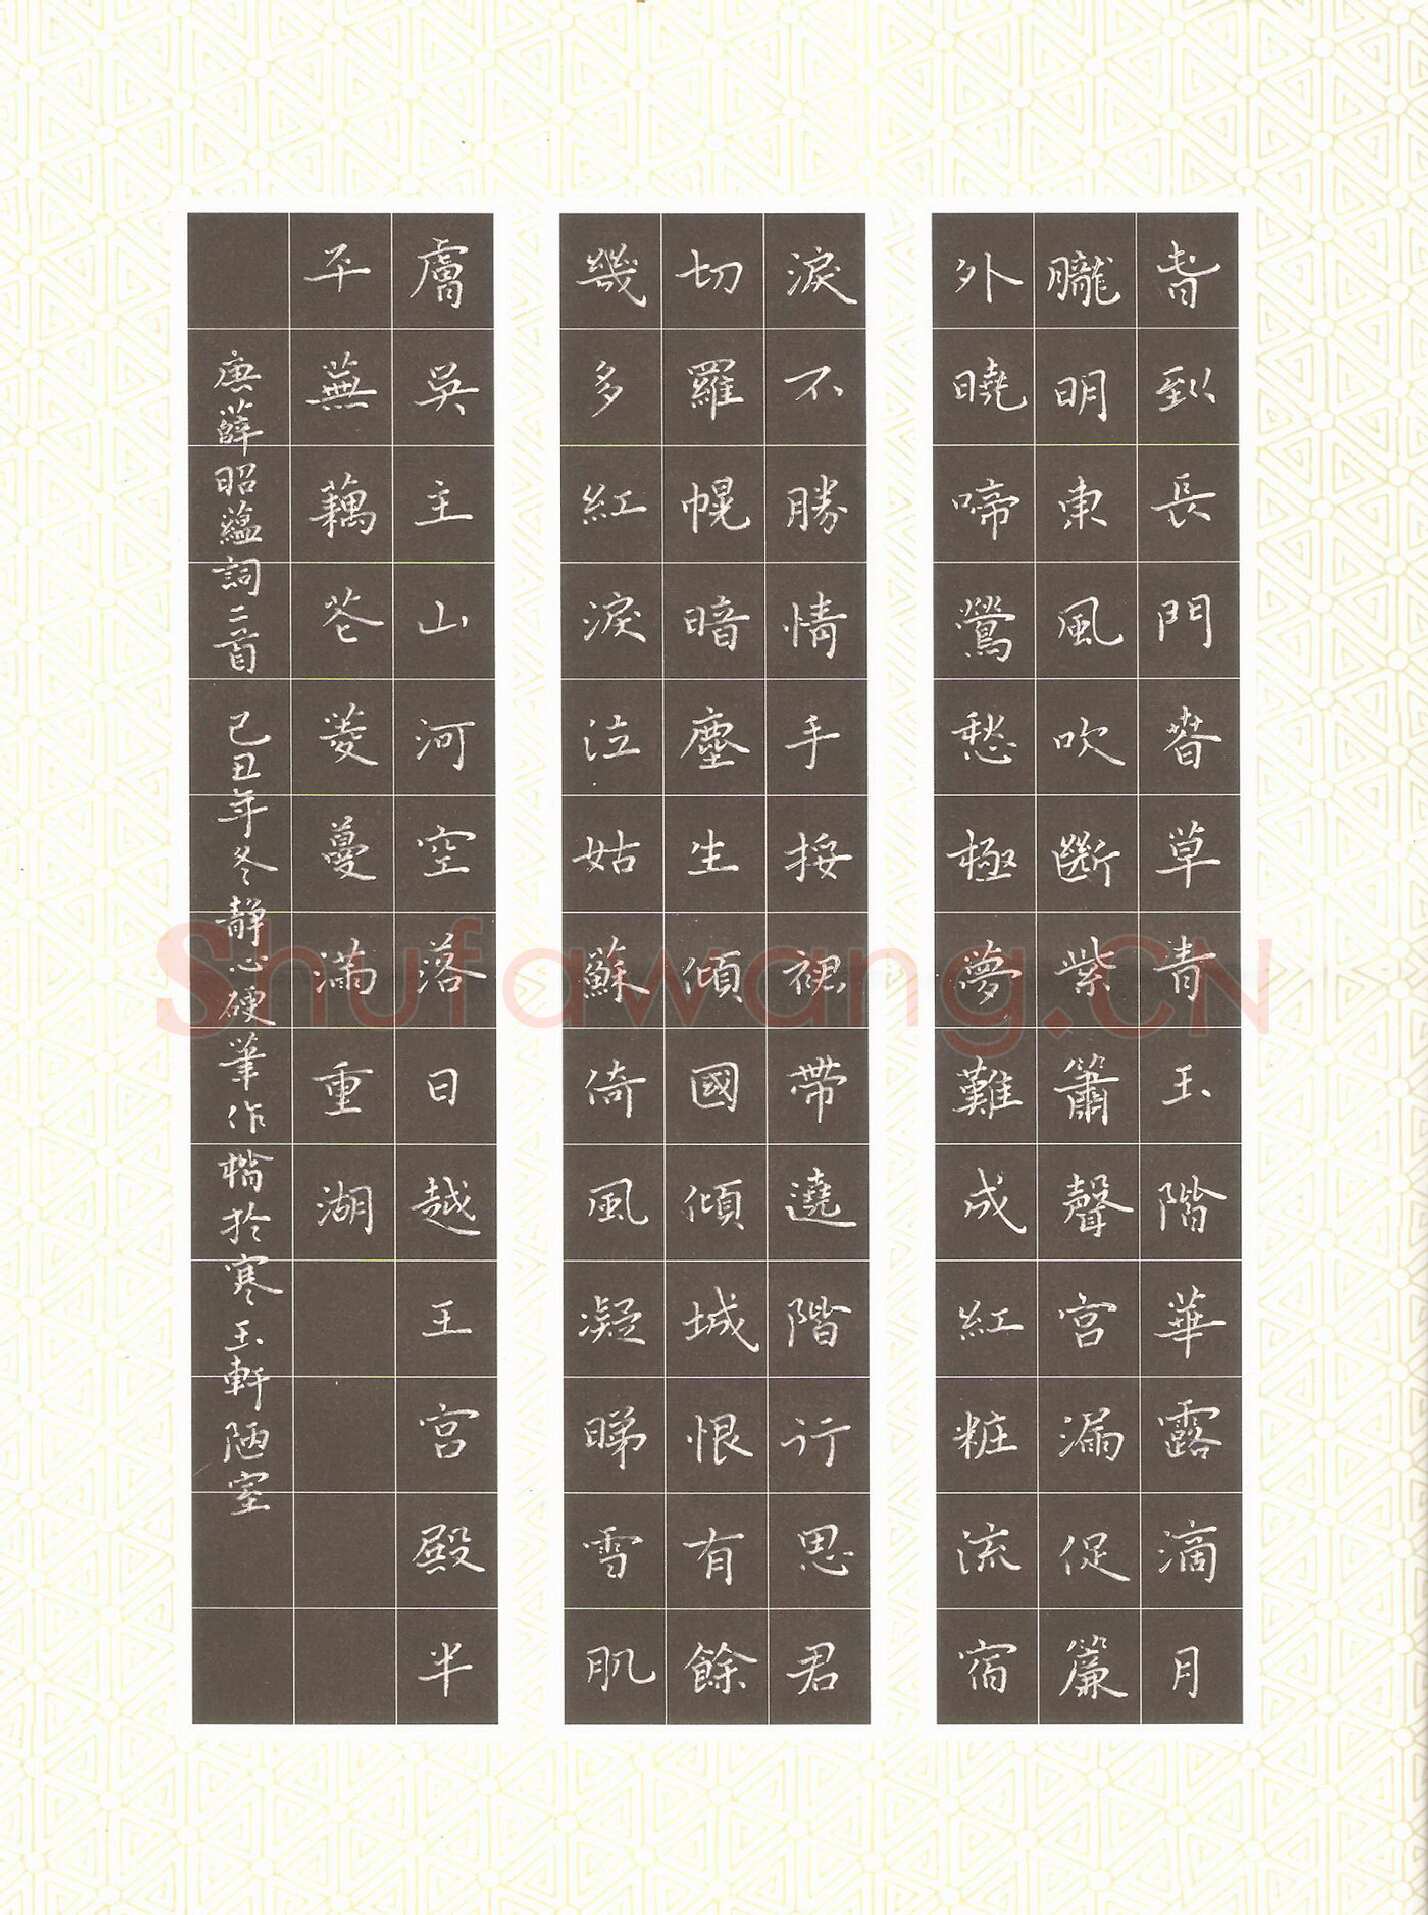 旾到長門萅草青玉階華露滴月
朧明東風吹斷紫簫聲宮漏促簾
外曉啼鶯愁極夢難成紅粧流宿
淚不勝情手挼裙帶遶階行思君
切羅幌暗塵生傾國傾城恨有餘
幾多紅淚泣姑蘇倚風凝睇雪肌
膚吳主山河空落日越王宮殿半
平蕪藕花菱蔓滿重湖
唐薛昭蘊詞二首 己丑年冬靜心硬筆作於寒玉軒陋室
Shufawang.CN